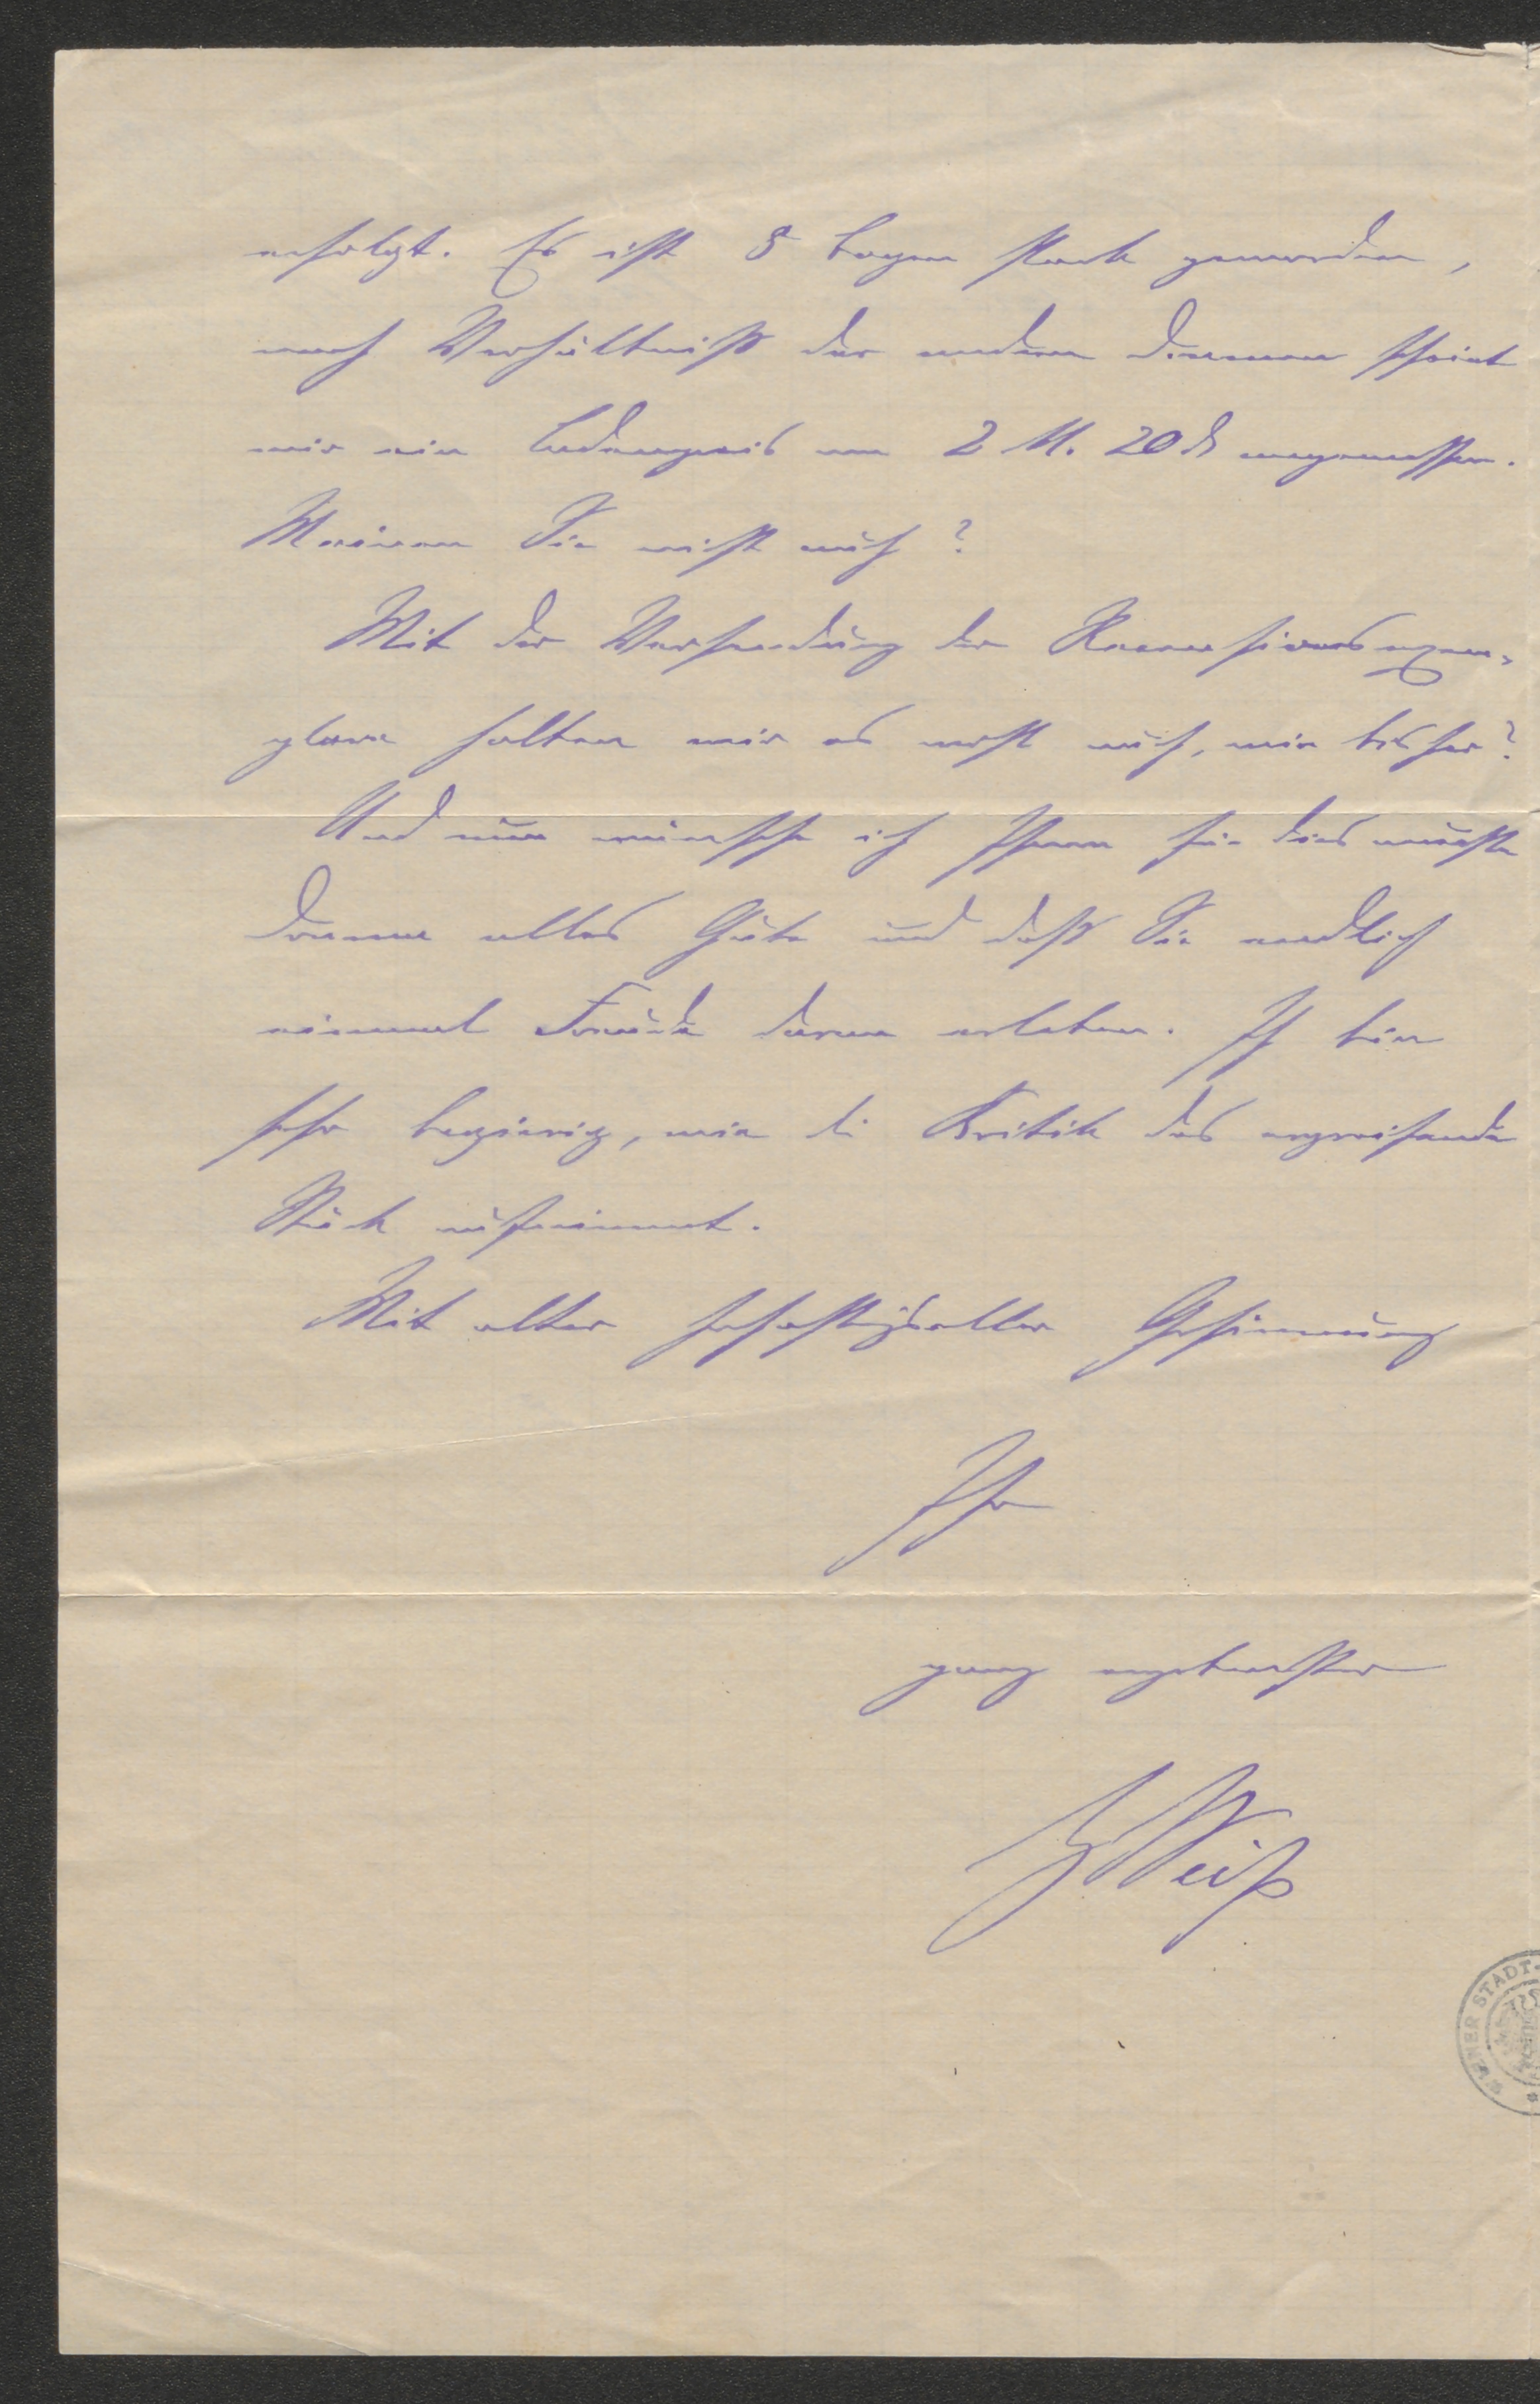 erfolgt. Es ist 8 Bogen stark geworden,
nach Verhältniß der andern Dramen scheint
mir ein Ladenpreis von 2 M. 20 ₰ angemessen.
Meinen Sie nicht auch?
Mit der Versendung der Recensionsexem-
plare halten wir es wohl auch, wie bisher?
Und nun wünsche ich Ihnen für dies neueste
Drama alles Gute und daß Sie endlich
einmal Freude daran erleben. Ich bin
sehr begierig, wie die Kritik das ergreifende
Stück aufnimmt.
Mit alter hochachtungsvoller Gesinnung
Ihr
ganz ergebenster
Weiß
WIENER STADT-